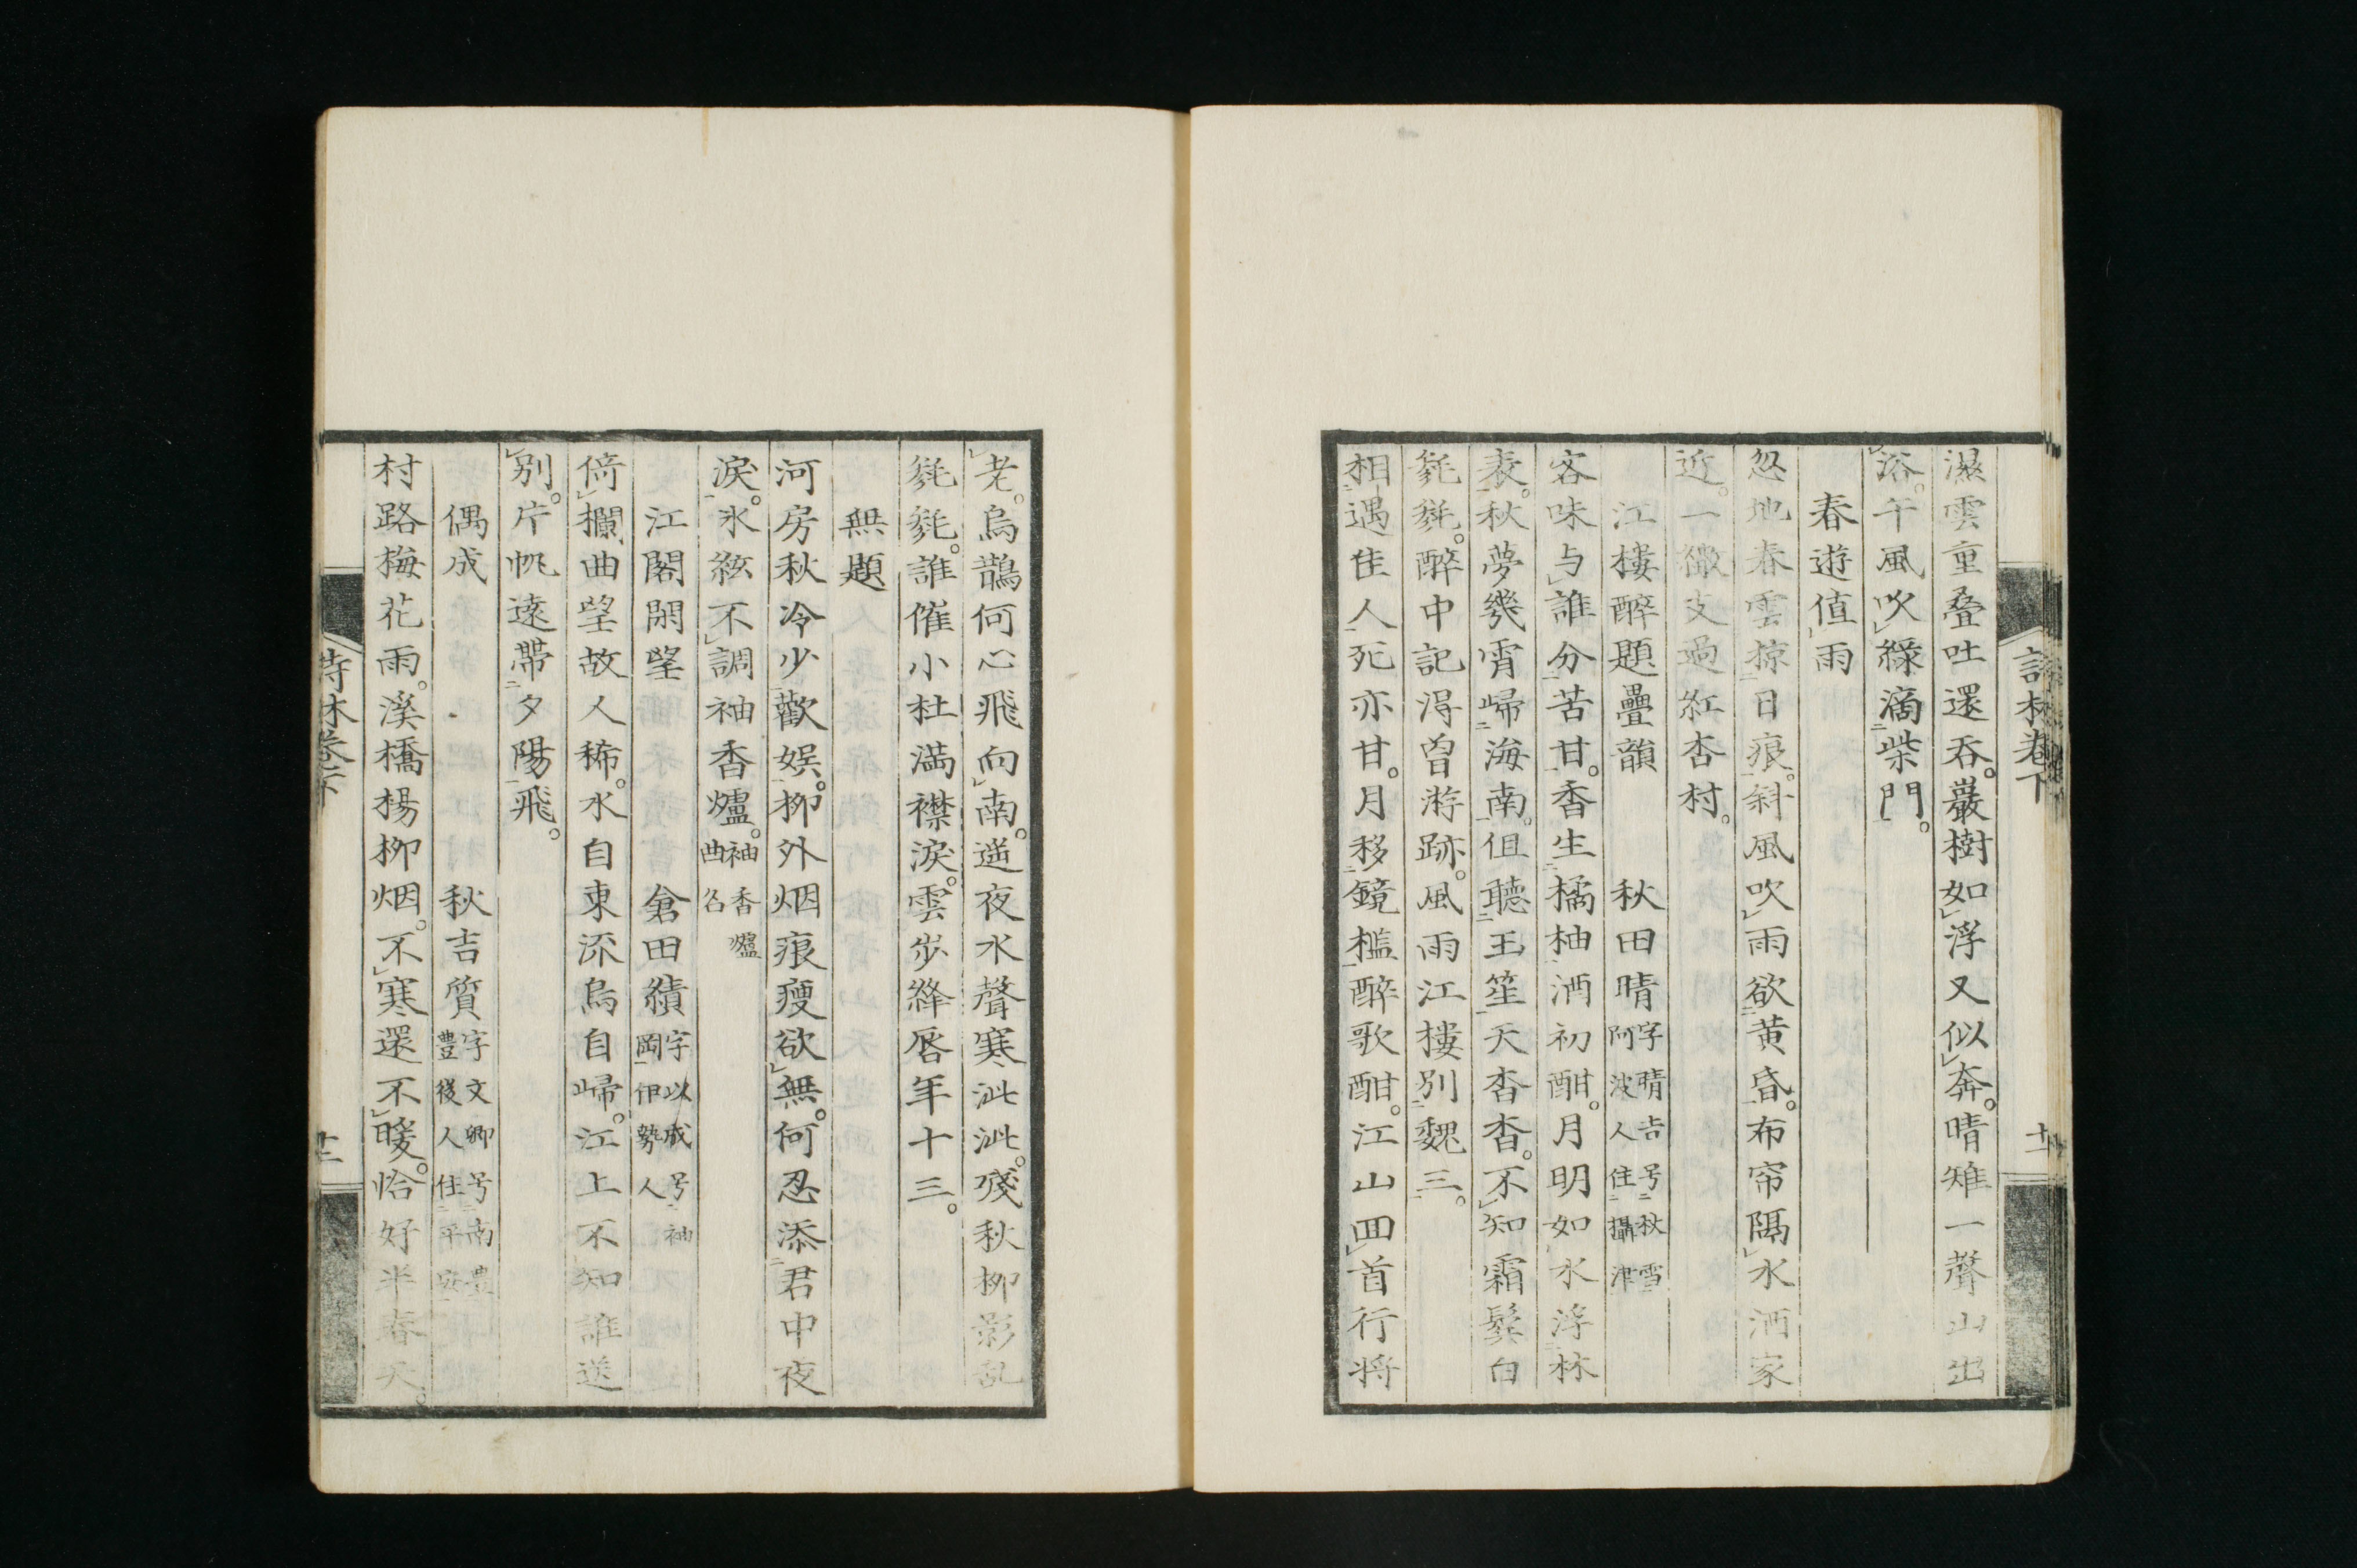 濕雲重叠吐還呑。巖樹如浮又似奔。晴雉一聲山出
浴。午風吹綠滴柴門。
春遊値雨
忽地春雲掠日痕。斜風吹雨欲黃昏。布帘隔水酒家
近。一徼支過紅杏村。
江樓醉題疊韻　秋田晴字晴吉号秋雪阿波人住攝津
客味与誰分苦甘。香生橘柚酒初酣。月明如水浮林
表。秋夢幾宵歸海南。但聽玉笙天杳杳。不知霜鬂白
毿毿。醉中記得曾游跡。風雨江樓別魏三。
相遇佳人死亦甘。月移鏡檻醉歌酣。江山回首行將
詩林卷下
十一
老。烏鵲何心飛向南。遙夜水聲寒泚泚。殘秋柳影亂
毿毿。誰催小杜滿襟淚。雲步絳唇年十三。
無題
河房秋冷少歡娯。柳外烟痕瘦欲無。何忍添君中夜
淚。氷絃不調袖香爐。袖香爐曲名
江閣閑望　倉田績字以成号袖岡伊勢人
倚欄曲望故人稀。水自東流烏自歸。江上不知誰送
別。片帆遠帶夕陽飛。
偶成　秋吉質字文卿号南豊豊後人住平安
村路梅花雨。溪橋楊柳烟。不寒還不暖。恰好半春天。
詩林卷下
十二